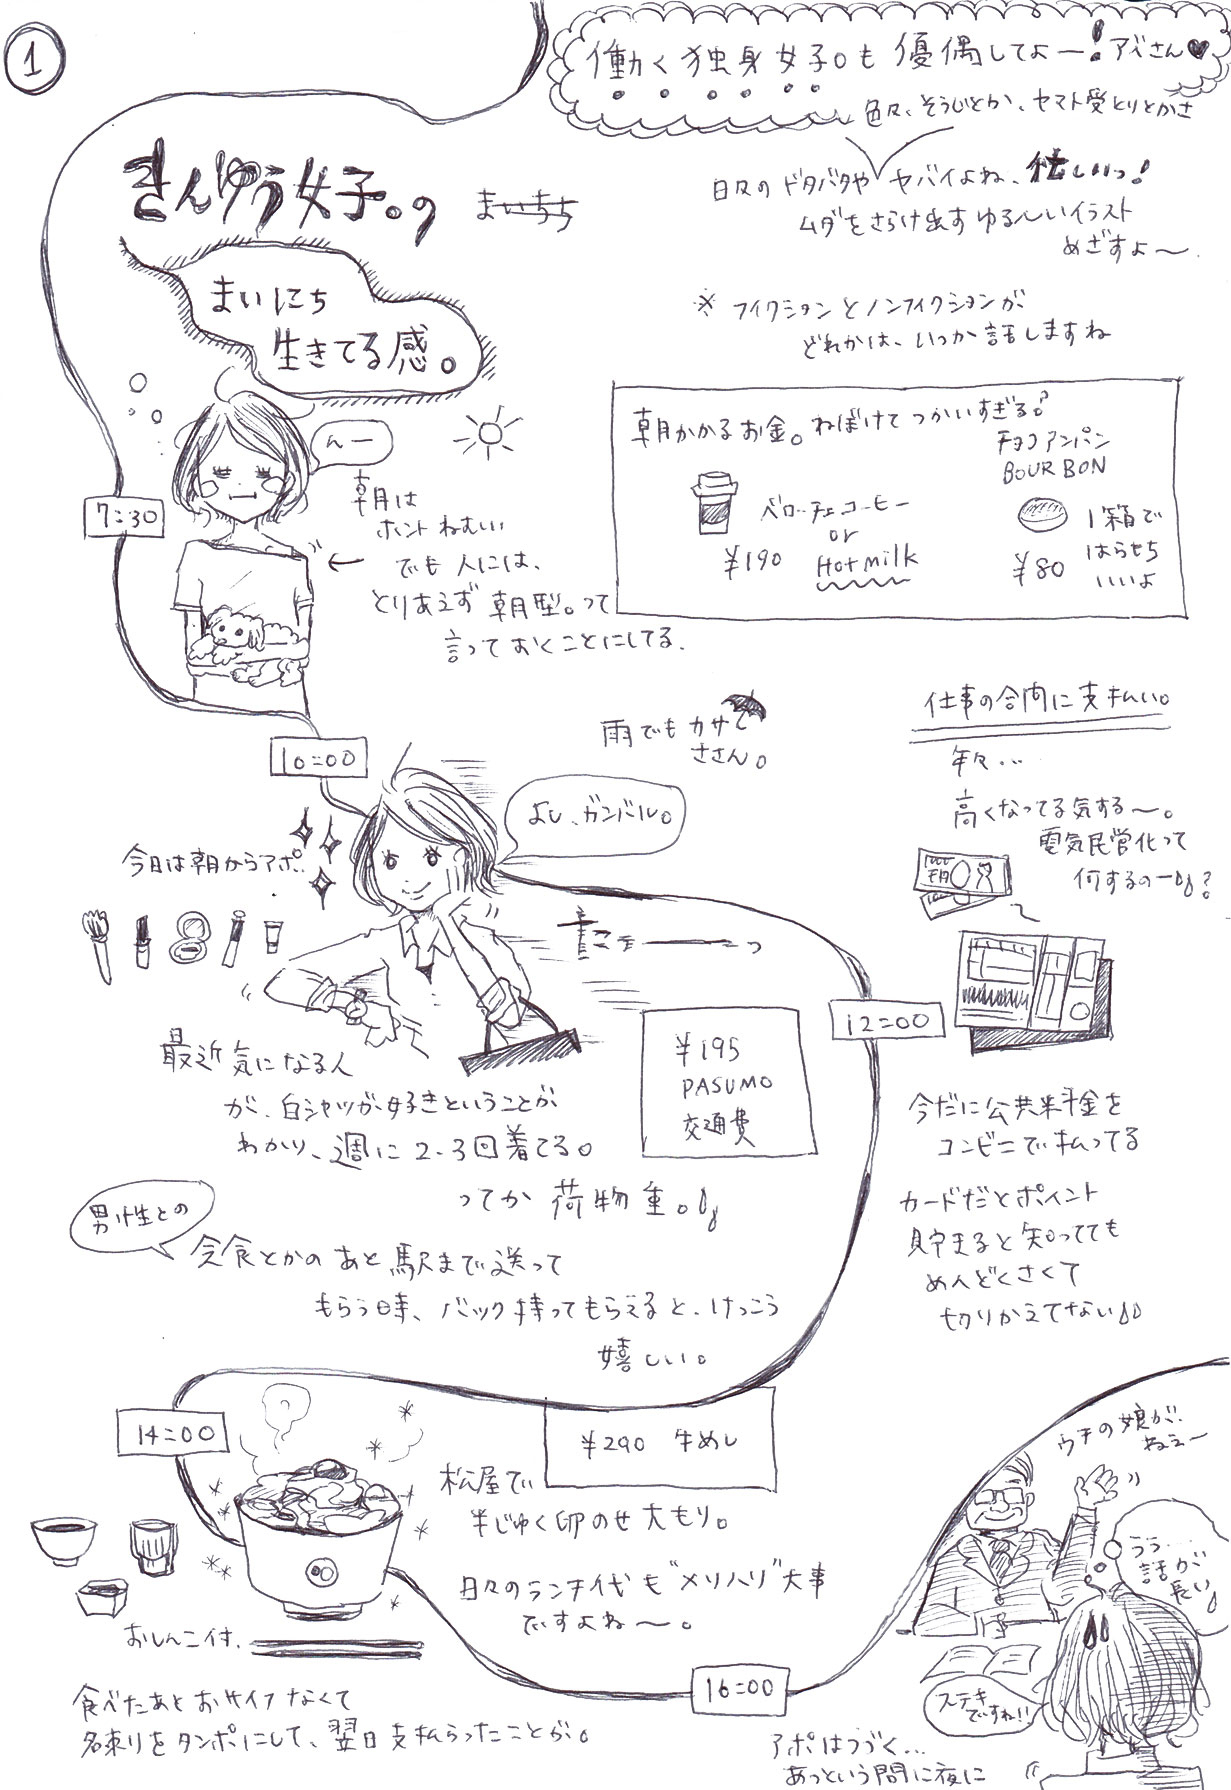 1
働く独身女子。も優遇してよー!アベさん♥
色々、そうじとか、ヤマト受とりとかさ
日々のドタバタやヤバイよね、忙しいっ!
ムダをさらけ出すゆる〜いイラスト
めざすよ〜.
きんゆう女子。の
まいにち
生きてる感。
※フィクションとノンフィクションが
どれかは、いつか話しますね
7:30
んー
朝は
ホントねむいい
でも人には、
とりあえず朝型。って
言っておくことにしてる.
朝かかるお金。ねぼけてつかいすぎる。
ベローチェコーヒー
or
Hot milk
¥190
チョコアンパン
BOURBON
¥80
1箱で
はらもち
いいよ
10:00
雨でもカサ
ささん。
よし、ガンバル。
今日は朝からアポ.
¥195
PASUMO
交通費
最近気になる人
が、白シャツが好きということが
わかり、週に2.3回着てる。
ってか荷物重。
男性との
会食とかのあと駅まで送って
もらう時、バック持ってもらえると、けっこう
嬉しい。
12:00
仕事の合間に支払い。
年々...
高くなってる気する〜。
電気民営化って
何するのー?
今だに公共料金を
コンビニで払ってる
カードだとポイント
貯まると知ってても
めんどくさくて
切りかえてない
14:00
¥290 牛めし
松屋で
半じゅく卵のせ大もり。
日々のランチ代も"メリハリ"大事
ですよね〜。
おしんこ付.
食べたあとおサイフなくて
名刺をタンポにして、翌日支払らったことが。
16:00
ウチの娘が
ねぇ〜
うう...
話が
長い
ステキ
ですね!!
アポはつづく...
あっという間に夜に